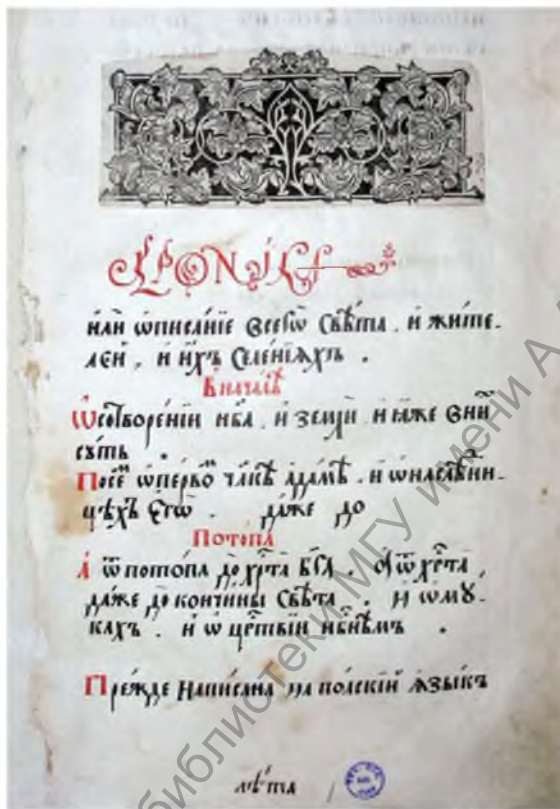 КРОNIКА
или ѡписанїе всегѡ Свѣта . и жите-
леи , и ихъ Селенїѧхъ .
Вначалѣ
Ѡсотворенїи нб҃а . и земли и ꙗже внихъ
суть .
Посе ѡперво чл҃кѣ Адамѣ . и ѡнаслѣдни-
цѣхъ Егѡ . даже до
Потопа
А ѿ потопа до хрⷭ҇та бг҃а . ѿ хрⷭ҇та ,
даже до кончины Свѣта . И ѡмꙋ-
кахъ . и ѡ црⷭ҇твїи нбⷭ҇нѣмъ .
Прежде написана на полскїи ѧзыкъ
библиотеки МГУ имени А